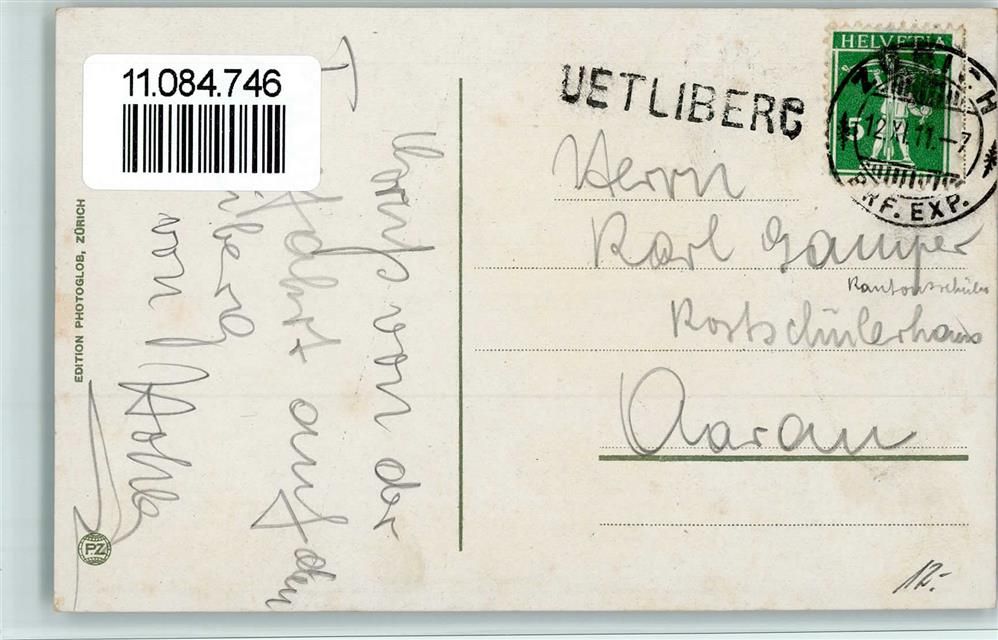 11.084.746
UETLIBERG
HELVETIA
5
ZÜRICH
12.XI.11.-7
BRF. EXP.
Herrn
Karl Gamper
Kantonsschüler
Kostschülerhaus
Aarau
von der
auf den
von
EDITION PHOTOGLOB, ZÜRICH
PZ
12.-